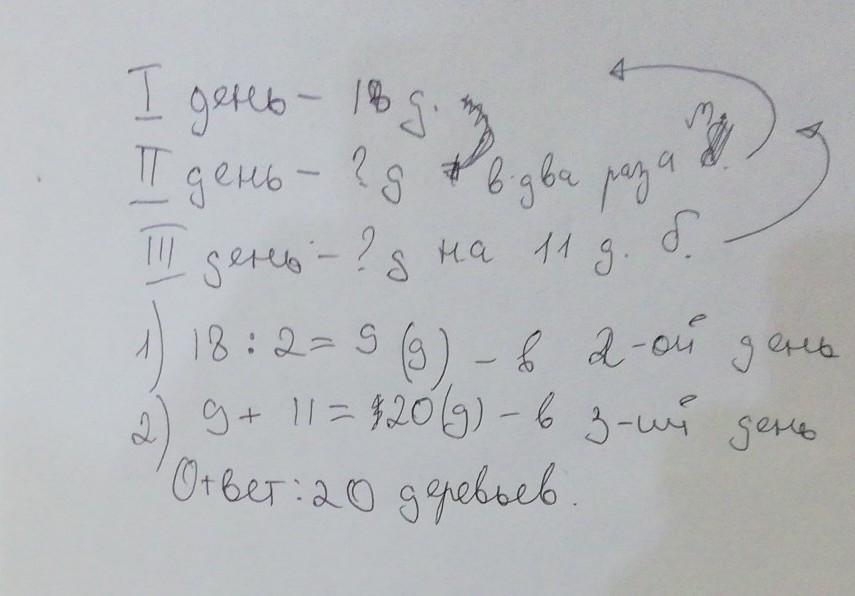 I день - 18 д.
II день - ? д в два раза м.
III день - ? д на 11 д. б.
1) 18 : 2 = 9 (д) - в 2-ой день
2) 9 + 11 = 20 (д) - в 3-ий день
Ответ: 20 деревьев.